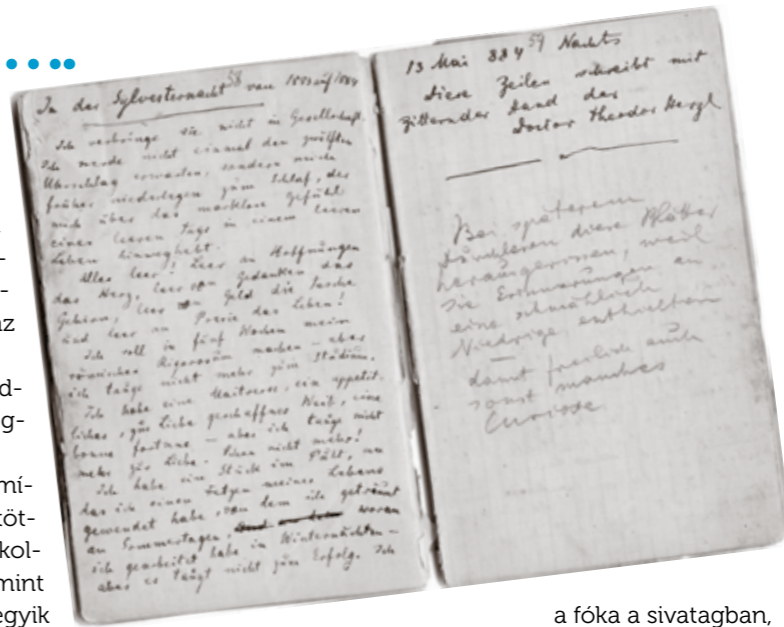 In der Sylvesternacht 58 von 1883 auf 1884
Ich verbringe sie nicht in Gesellschaft.
Ich werde nicht einmal den zwölften
Uhrschlag erwarten, sondern mich
früher niederlegen zum Schlaf, der
mich über das marklose Gefühl
eines leeren Tags in einem leeren
Leben hinweghebt.
Alles leer! Leer an Hoffnungen
das Herz, leer von Gedanken das
Gehirn, leer von Geld die Tasche
und leer an Poesie das Leben!
Ich soll in fünf Wochen mein
römisches Rigorosum machen – aber
ich tauge nicht mehr zum Studium.
Ich habe eine Maitresse, ein appetit-
liches, zur Liebe geschaffnes Weib, eine
bonne fortune – aber ich tauge nicht
mehr zur Liebe. Schon nicht mehr!
Ich habe ein Stück im Pult, an
das ich einen Fetzen meines Lebens
gewendet habe, von dem ich geträumt
an Sommertagen, woran
ich gearbeitet habe in Winternächten –
aber es taugt nicht zum Erfolg. Ich
13 Mai 884 59 Nachts
Diese Zeilen schreibt mit
zitternder Hand der
Doctor Theodor Herzl
Bei späterem
diese Blätter
herausgerissen, weil
sie Erinnerungen an
eine schmählich
Niedrige enthielten
damit freilich auch
sonst manches
Curiose.
az
d-
g-
mí-
köt-
kol-
mint
egyik
a fóka a sivatagban,